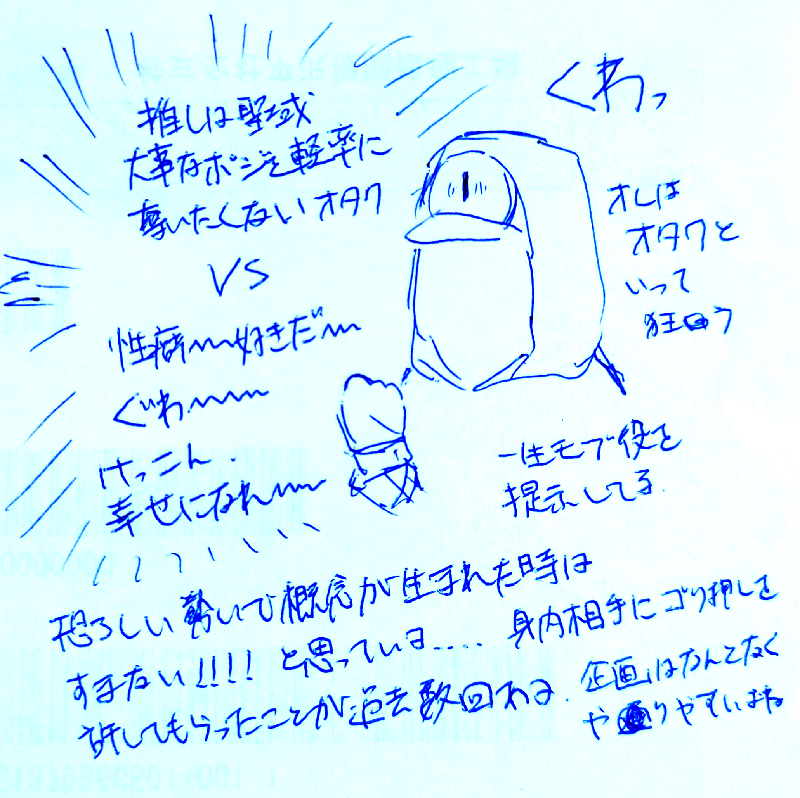 推しは聖域
大事なポジを軽率に
奪いたくないオタク
VS
性癖〜〜好きだ〜〜
ぐわ〜〜〜
けっこん
幸せになれ〜〜
くわっ
オレは
オタクと
いって
狂う
一生モブ役を
提示してる
恐ろしい勢いで概念が生まれた時は
すまない!!!! と思っている.... 身内相手にゴリ押しを
許してもらったことが過去数回ある. 企画はなんとなく
やりやすいよね